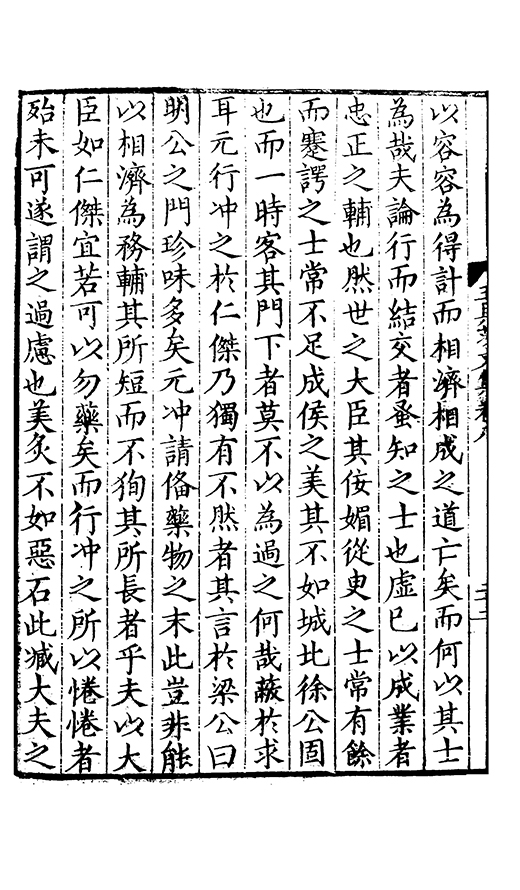 以容容為得計而相濟相成之道亡矣而何以其士
為哉夫論行而結交者蚤知之士也虛已以成業者
忠正之輔也然世之大臣其侫媚從臾之士常有餘
而蹇諤之士常不足成侯之美其不如城北徐公固
也而一時客其門下者莫不以為過之何哉蔽於求
耳元行冲之於仁傑乃獨有不然者其言於梁公曰
明公之門珍味多矣元冲請俻藥物之末此豈非能
以相濟為務輔其所短而不狥其所長者乎夫以大
臣如仁傑宜若可以勿藥矣而行冲之所以惓惓者
殆未可遂謂之過慮也美灸不如惡石此臧大夫之